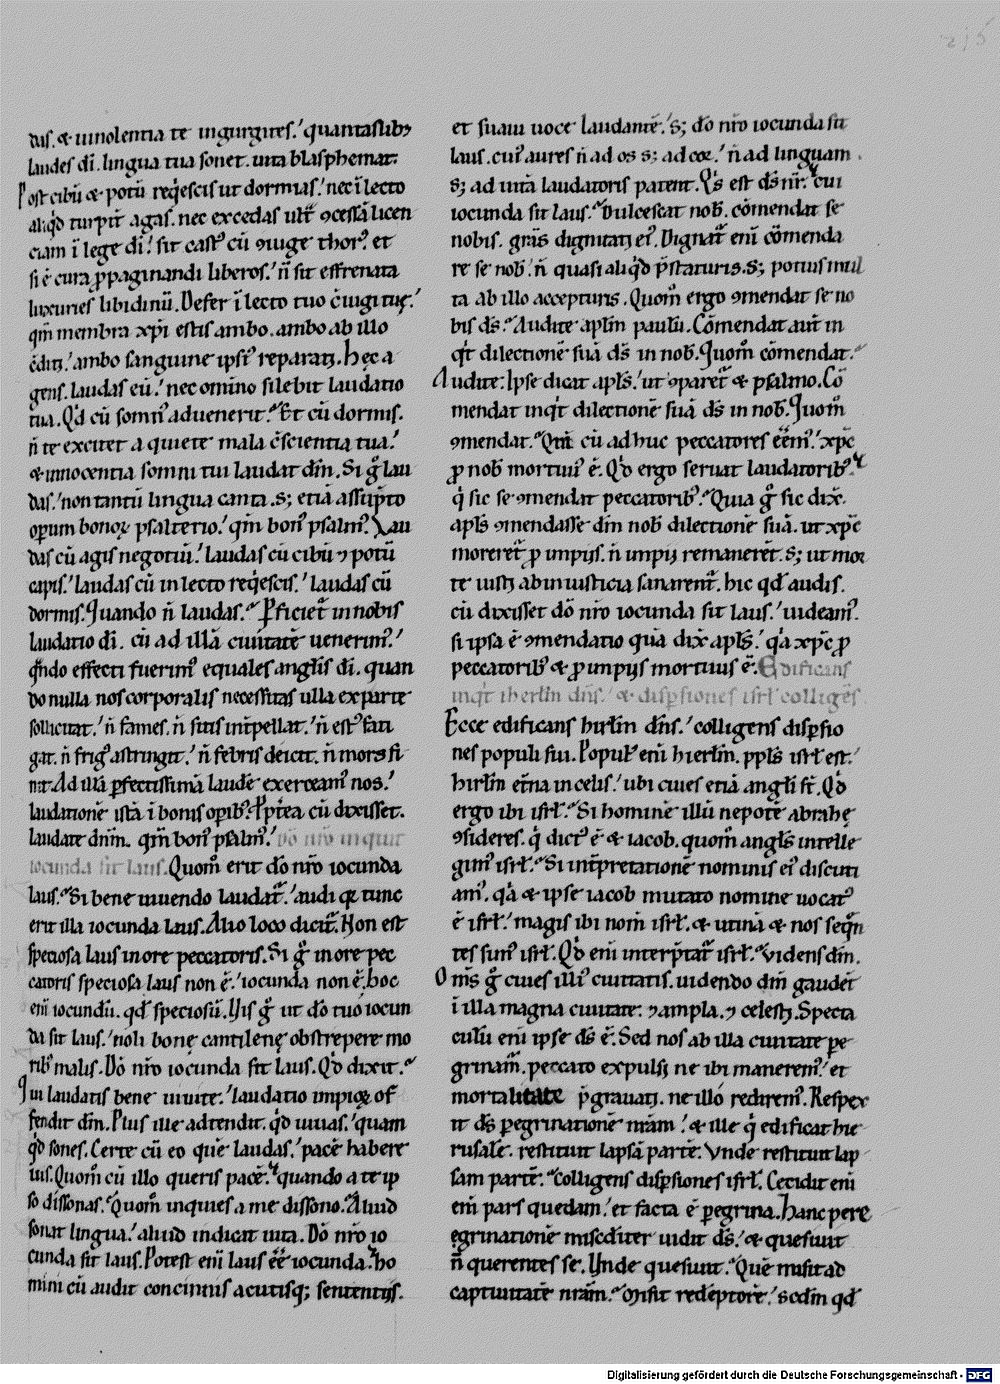 das. & uinolentia te ingurgites.' quantaslibꝫ
laudes di. lingua tua sonet. uita blasphemat.
Post cibū & potū reqͥescis ut dormias.' nec ī lecto
aliqͥd turpit̄ agas. nec excedas ult̄ ꝯcessā licen
ciam ī lege di.' sit castꝰ cū ꝯiuge thorꝰ. et
si ē cura ꝓpaginandi liberos.' n̄ sit effrenata
luxuries libidinū. Defer ī lecto tuo c̄iugi tuę.'
qm̄ membra xp̄i estis ambo. ambo ab illo
c̄diti.' ambo sanguine ipsiꝰ reparati. hęc a
gens. laudas eū.' nec omino silebit laudatio
tua. Qͥd cū somnꝰ aduenerit. Et cū dormis.
n̄ te excitet a quiete mala c̄scientia tua.'
& innocentia somni tui laudat dm̄. Si g̊ lau
das.' non tantū lingua canta. s; etiā assūpto
operum bonoꝝ psalterio.' qm̄ bonꝰ psalmꝰ. Lau
das cū agis negotiū.' laudas cū cibū ⁊ potū
capis.' laudas cū in lecto reqͥescis.' laudas cū
dormis. Quando n̄ laudas. Ꝑficiet̄ in nobis
laudatio di. cū ad illā ciuitatē uenerimꝰ.'
qn̄do effecti fuerimꝰ equales anglis di. quan
do nulla nos corporalis necessitas ulla ex parte
sollicitat.' n̄ fames. n̄ sitis int̄pellat.' n̄ estꝰ fati
gat. n̄ frigꝰ astringit.' n̄ febris deicit. n̄ mors fi
nit. Ad illā ꝑfectissimā laudē exerceamꝰ nos.'
laudationē istā ī bonis oꝑibꝰ. Ꝓpt̄ea cū dixisset.
laudate dn̄m. qm̄ bonꝰ psalmꝰ.' dō nr̄o inquit
iocunda sit laus. Quom̊ erit dō nr̄o iocunda
laus. Si bene uiuendo laudat̄.' audi qꝛ tunc
erit illa iocunda laus. Alio loco dicit̄. Non est
speciosa laus in ore peccatoris. Si g̊ in ore pec
catoris speciosa laus non ē.' iocunda non ē. hoc
enī iocundū. qd̄ speciosū. Uis g̊ ut dō tuo iocun
da sit laus.' noli bonę cantilenę obstrepere mo
ribꝰ malis. Dō nr̄o iocunda sit laus. Qͥd dixit.
Qui laudatis bene uiuite.' laudatio impioꝝ of
fendit dm̄. Plus ille adtendit. qͦd uiuas.' quam
qͦd sones. Certe cū eo quē laudas.' pacē habere
uis. Quom̊ cū illo queris pacē. quando a te ip
so dissonas. Quom̊ inquies a me dissono. Aliud
sonat lingua.' aliud indicat uita. Dō nr̄o io
cunda sit laus. Potest enī laus eē iocunda. ho
mini cū audit concinnis acutisq; sententijs.
et suaui uoce laudantē.' s; dō nr̄o iocunda sit
laus. cuiꝰ aures n̄ ad os s; ad cor.' n̄ ad linguam.
s; ad uitā laudatoris patent. Qͥs est ds̄ nr̄. cui
iocunda sit laus. Dulcescat nob̄. cōmendat se
nobis. gr̄as dignitati eiꝰ. Dignat̄ enī cōmenda
re se nob̄.' n̄ quasi aliqͥd p̄staturis. s; potius mul
ta ab illo accepturis. Quom̊ ergo ꝯmendat se no
bis ds̄. Audite aplm̄ paulū. Cōmendat aut̄ in
qͥt dilectionē suā ds̄ in nob̄. Quom̊ cōmendat.
Audite. Ipse dicat apls̄.' ut ꝯparet̄ & psalmo. Cō
mendat inqͥt dilectionē suā ds̄ in nob̄. Quom̊
ꝯmendat. Qm̄ cū adhuc peccatores eēmꝰ.' xp̄c
ꝓ nob̄ mortuus ē. Qͥd ergo seruat laudatoribꝰ.
qͥ sic se ꝯmendat peccatoribꝰ. Quia g̊ sic dix̄.
apls̄ ꝯmendasse dm̄ nob̄ dilectionē suā. ut xp̄c
moreret̄ ꝓ impijs. n̄ impij remanerēt. s; ut mor
te iusti ab iniusticia sanarent̄. hic qd̄ audis.
cū dixisset dō nr̄o iocunda sit laus.' uideamꝰ.
si ipsa ē ꝯmendatio quā dix̄ apls̄.' qͣa xp̄c ꝓ
peccatoribꝰ & ꝓ impijs mortuus ē. Edificans
inqͥt iherłm dn̄s.' & disꝑsiones isr̄l colligēs.
Ecce edificans hierłm dn̄s.' colligens disꝑsio
nes populi sui. Populꝰ enī hierłm. ppls̄ isr̄l est.'
hierłm et̄na in celis.' ubi ciues etiā angli st̄. Qͥd
ergo ibi isr̄l. Si hominē illū nepotē abrahę
ꝯsideres. qͥ dictꝰ ē & iacob. quom̊ angls̄ intelle
gimꝰ isr̄l. Si int̄pretationē nominis eiꝰ discuti
amꝰ. qͣa & ipse iacob mutato nomine uocatꝰ
ē isr̄l.' magis ibi nom̄ isr̄l. & utinā & nos seqn̄
tes simꝰ isr̄l. Qͥd enī interp̄tat̄ isr̄l. Videns dm̄.
Oms̄ g̊ ciues illiꝰ ciuitatis. uidendo dm̄ gaudēt
ī illa magna ciuitate. ⁊ ampla. ⁊ celesti. Specta
culū enī ipse ds̄ ē. Sed nos ab illa ciuitate pe
grinam̄. peccato expulsi ne ibi maneremꝰ.' et
mortalitate p̄grauati. ne illo redirem̄. Respex
it ds̄ ꝑegrinationē nr̄am.' & ille qͥ edificat hie
rusalē. restituit lapsā partē. Vnde restituit lap
sam partē. Colligens disꝑsiones isr̄l. Cecidit enī
enī pars quedam.' et facta ē ꝑegrina. Hanc pere
egrinationē miscd̄iter uidit ds̄.' & quesiuit
n̄ querentes se. Unde quesiuit. Quē misit ad
captiuitatē nr̄am. Misit redēptorē.' scdm̄ qd̄
Digitalisierung gefördert durch die Deutsche Forschungsgemeinschaft - DFG